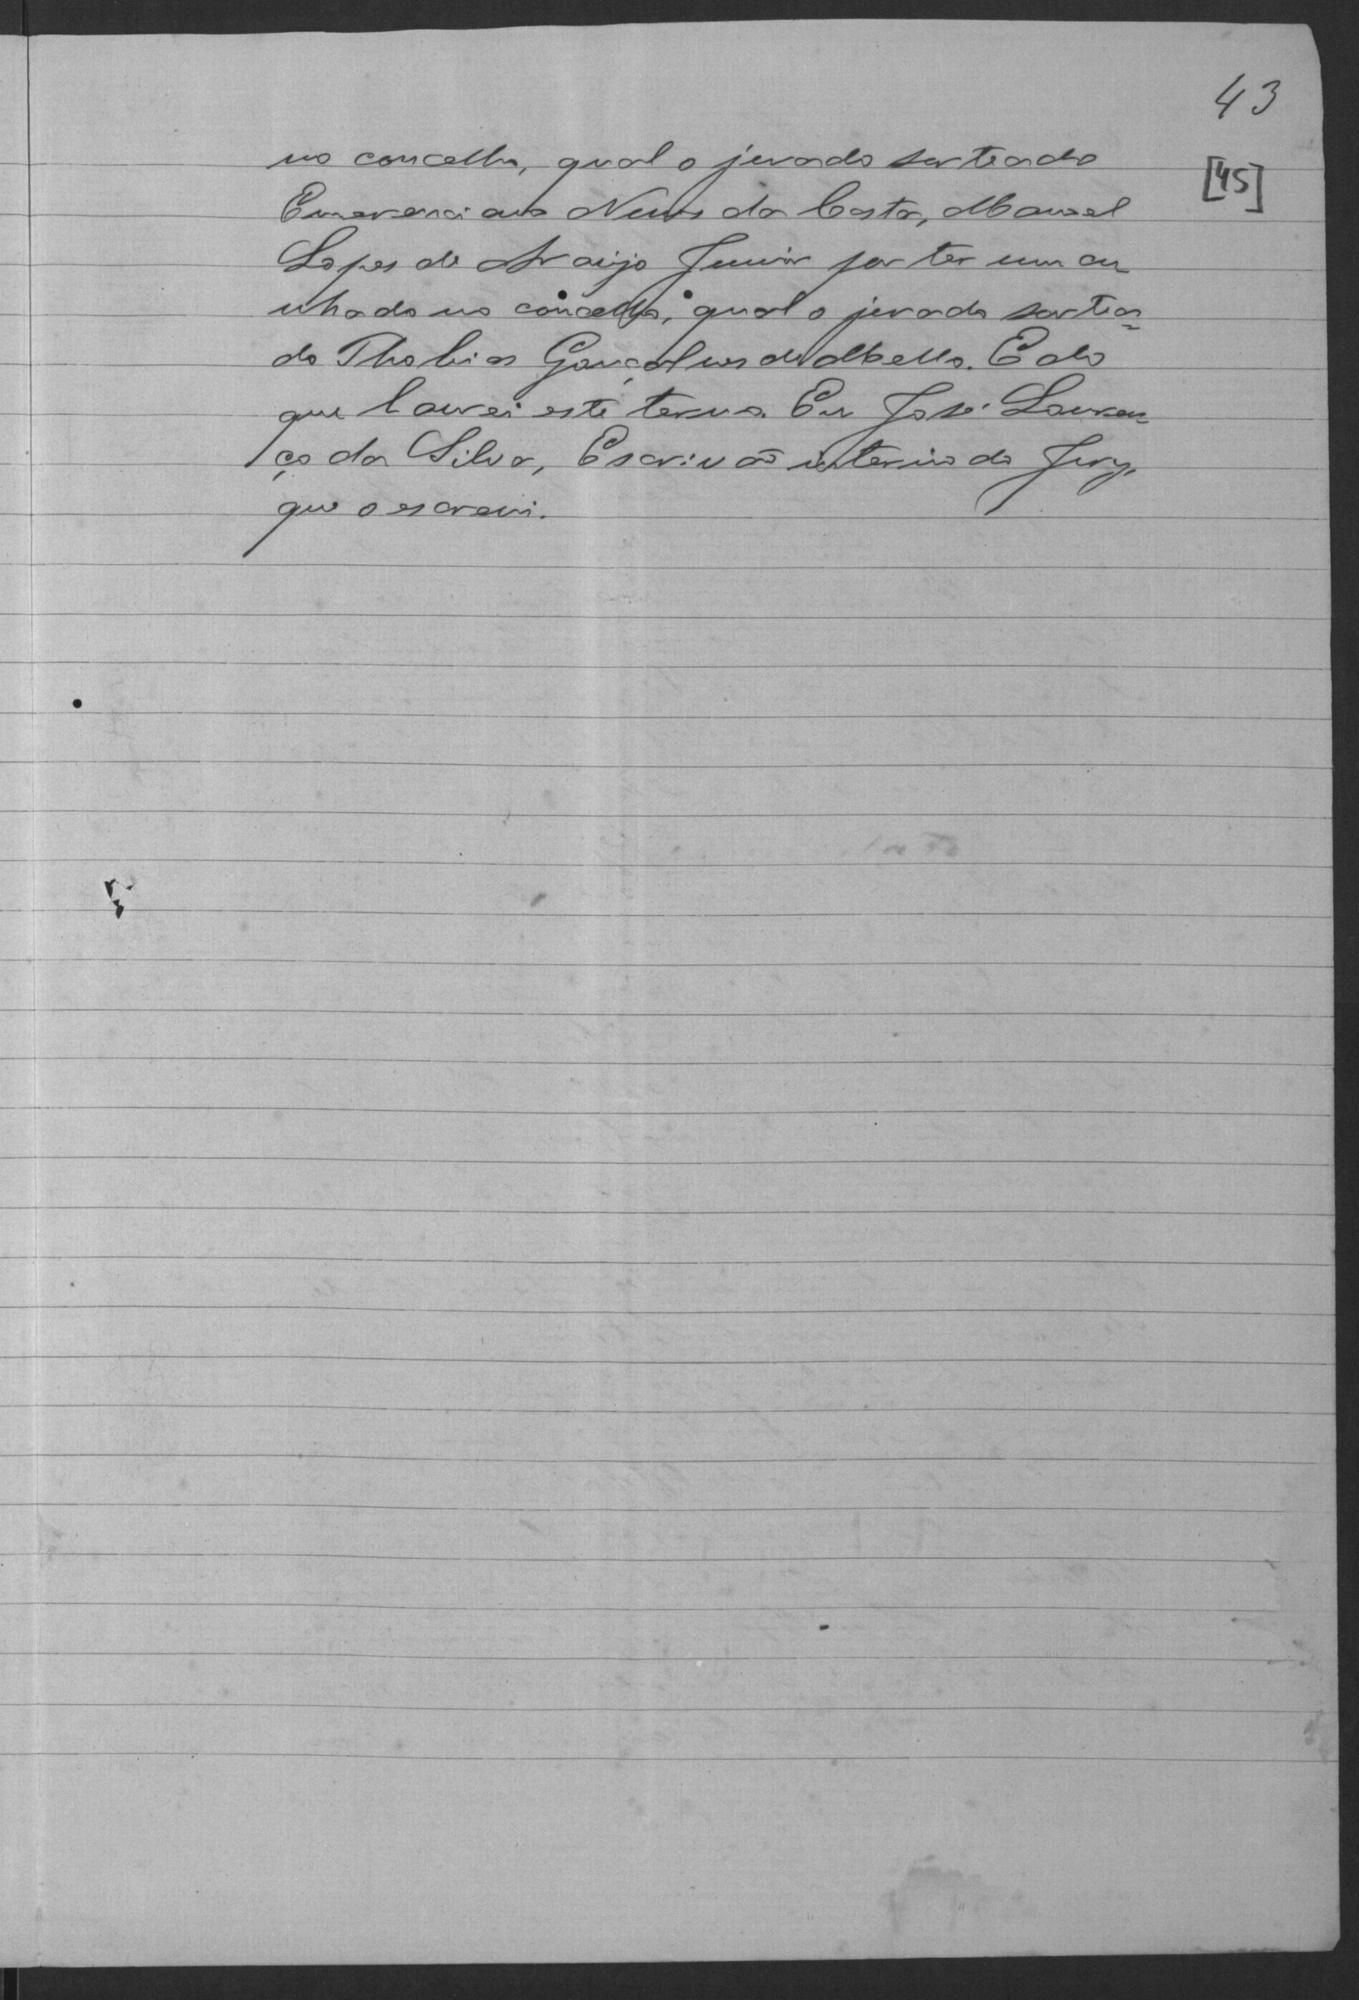 43
[45]
no concelho, qual o jurado sorteado
Emerenciano Neves da Costa, Manoel
Lopes de Araujo Junior por ter um cu
nhado no concelho, qual o jurado sortea-
do Thobias Gonçalves de Mello. E do
que lavrei este termo. Eu José Louren-
ço da Silva, Escrivão interino do Jury,
que o escrevi.